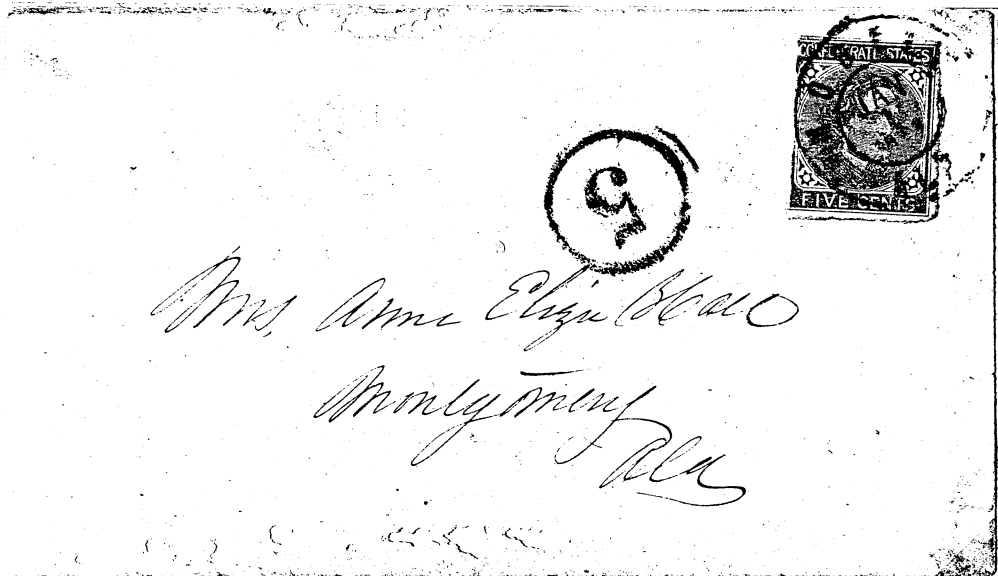 CONFEDERATE STATES
FIVE CENTS
5
Mrs. Anne Eliza
Montgomery
Ala